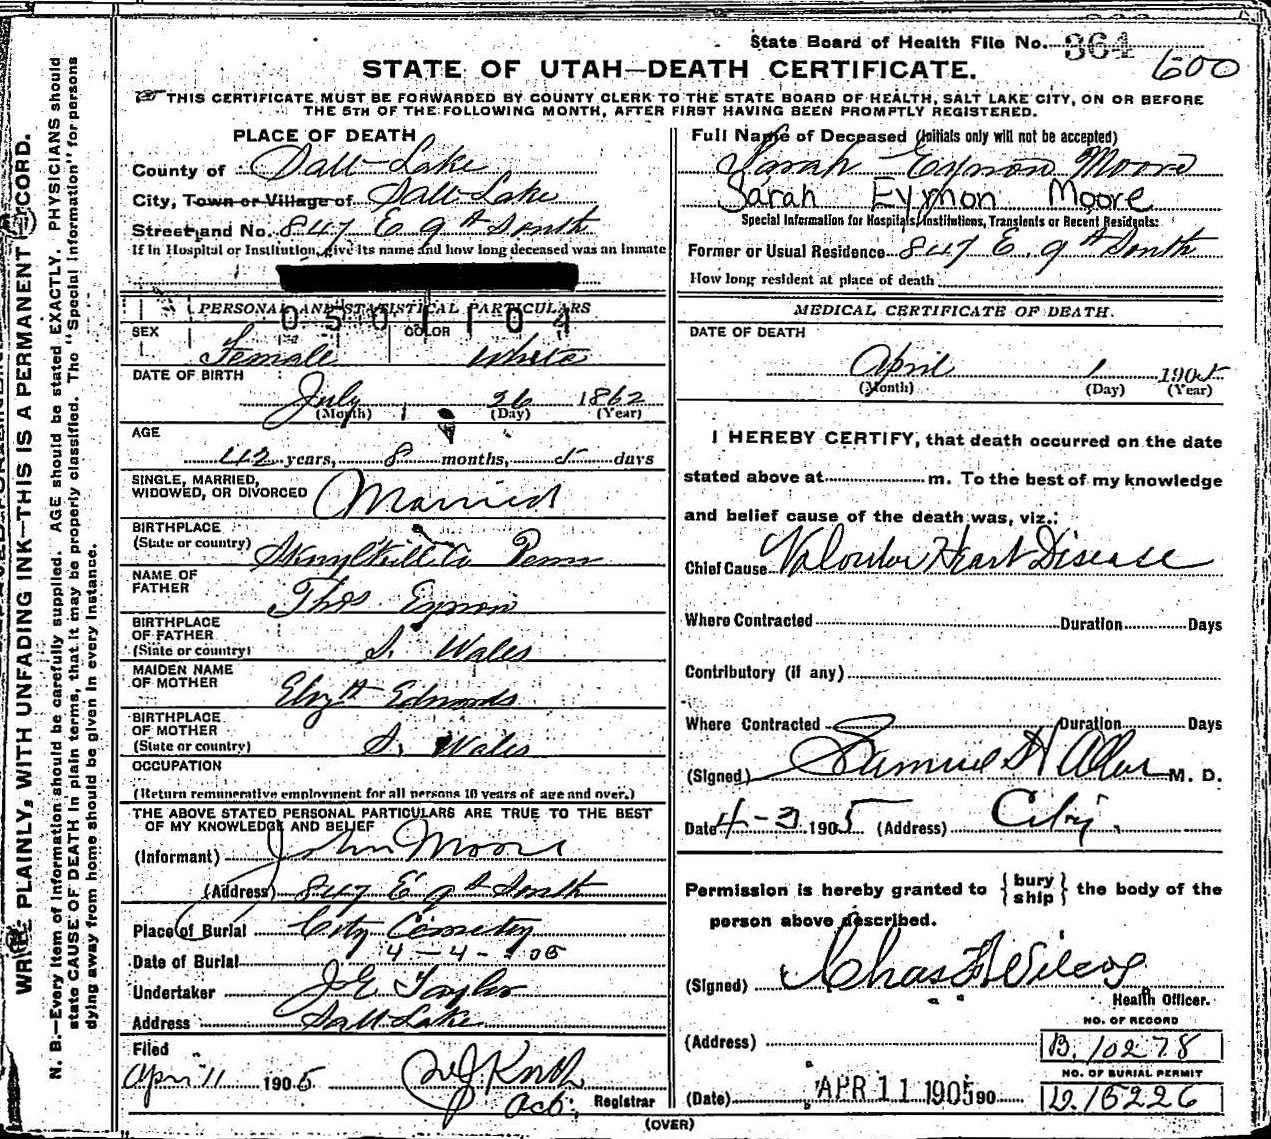 State Board of Health File No. 364
600
STATE OF UTAH—DEATH CERTIFICATE.
THIS CERTIFICATE MUST BE FORWARDED BY COUNTY CLERK TO THE STATE BOARD OF HEALTH, SALT LAKE CITY, ON OR BEFORE
THE 5TH OF THE FOLLOWING MONTH, AFTER FIRST HAVING BEEN PROMPTLY REGISTERED.
WRITE PLAINLY, WITH UNFADING INK—THIS IS A PERMANENT RECORD.
N. B.—Every item of information should be carefully supplied. AGE should be stated EXACTLY. PHYSICIANS should
state CAUSE OF DEATH in plain terms, that it may be properly classified. The "Special Information" for persons
dying away from home should be given in every instance.
PLACE OF DEATH
County of Salt Lake
City, Town or Village of Salt Lake
Street and No. 847 E 9th South
If in Hospital or Institution, give its name and how long deceased was an inmate
PERSONAL AND STATISTICAL PARTICULARS
0501104
SEX Female COLOR White
DATE OF BIRTH
July 26 1862
(Month) (Day) (Year)
AGE
42 years, 8 months, 5 days
SINGLE, MARRIED,
WIDOWED, OR DIVORCED Married
BIRTHPLACE
(State or country) Skuylkill Co Penn
NAME OF
FATHER Thos Eynon
BIRTHPLACE
OF FATHER
(State or country) S. Wales
MAIDEN NAME
OF MOTHER Elizth Edmonds
BIRTHPLACE
OF MOTHER
(State or country) S. Wales
OCCUPATION
(Return remunerative employment for all persons 10 years of age and over.)
THE ABOVE STATED PERSONAL PARTICULARS ARE TRUE TO THE BEST
OF MY KNOWLEDGE AND BELIEF
(Informant) John Moore
(Address) 847 E 9th South
Place of Burial City Cemetery
Date of Burial 4-4-1905
Undertaker J E Taylor
Address Salt Lake
Filed
April 11 1905
Act. Registrar
Full Name of Deceased (Initials only will not be accepted)
Sarah Eynon Moore
Sarah Eynon Moore
Special Information for Hospitals, Institutions, Transients or Recent Residents:
Former or Usual Residence 847 E. 9th South
How long resident at place of death
MEDICAL CERTIFICATE OF DEATH.
DATE OF DEATH
April 1 1905
(Month) (Day) (Year)
I HEREBY CERTIFY, that death occurred on the date
stated above at m. To the best of my knowledge
and belief cause of the death was, viz.:
Chief Cause Valvular Heart Disease
Where Contracted Duration Days
Contributory (if any)
Where Contracted Duration Days
(Signed) Samuel H Allen M. D.
Date 4-3 1905 (Address) City.
Permission is hereby granted to { bury ship } the body of the
person above described.
(Signed) Chas F Wilcox
Health Officer.
NO. OF RECORD
(Address) B. 10278
NO. OF BURIAL PERMIT
(Date) APR 11 1905 90 D. 15226
(OVER)